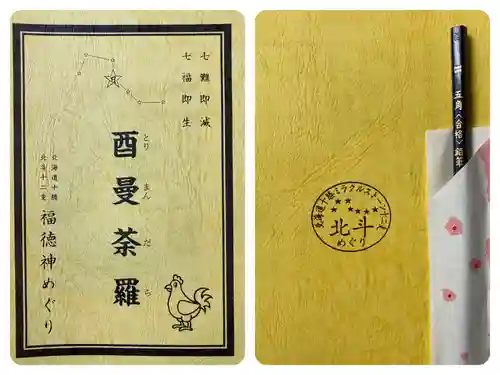 七難即滅
七福即生
酉曼荼羅
とりまんだら
北海道十勝
北斗十二支
福徳神めぐり
五角〈合格〉鉛筆
北海道十勝ミラクルストーン十二支
北斗
めぐり